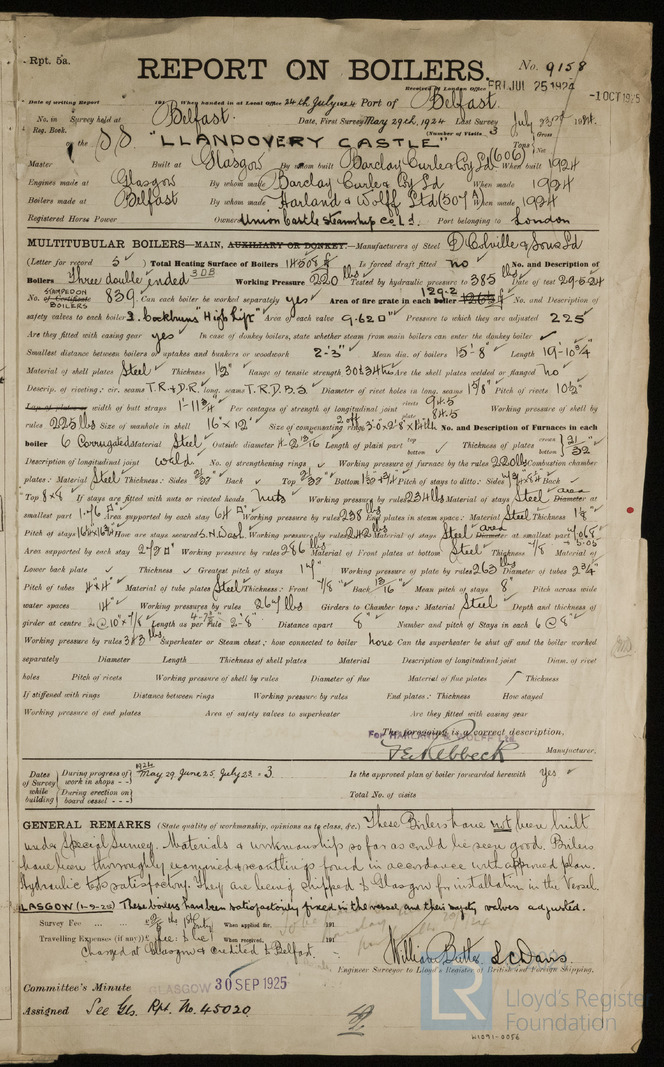 Rpt. 5a.
REPORT ON BOILERS.
No. 9158
Received at London Office FRI JUL 25 1924
-1 OCT 1925
Date of writing Report 191 When handed in at Local Office 24th July 1924 Port of Belfast.
No. in Survey held at Belfast. Date, First Survey May 29th, 1924 Last Survey July 23rd 1924.
Reg. Book. (Number of Visits 3 Gross
on the SS "LLANDOVERY CASTLE" Tons Net
Master Built at Glasgow By whom built Barclay Curle & Coy Ld (606) When built 1924
Engines made at Glasgow By whom made Barclay Curle & Coy Ld When made 1924
Boilers made at Belfast By whom made Harland & Wolff Ltd When made 1924
Registered Horse Power Owners Union Castle Steamship Co Ld. Port belonging to London
MULTITUBULAR BOILERS—MAIN, AUXILIARY OR DONKEY.—Manufacturers of Steel D. Colville & Sons Ld
(Letter for record S) Total Heating Surface of Boilers Is forced draft fitted no No. and Description of
Boilers Three double ended 3 DB Working Pressure 220 lbs Tested by hydraulic pressure to 385 lbs Date of test 29-5-24
No. of Certificate STAMPED ON BOILERS 839. Can each boiler be worked separately yes Area of fire grate in each boiler 129.2 No. and Description of
safety valves to each boiler 3. Cockburns High Lift Area of each valve 9.62 □" Pressure to which they are adjusted 225
Are they fitted with easing gear yes In case of donkey boilers, state whether steam from main boilers can enter the donkey boiler
Smallest distance between boilers or uptakes and bunkers or woodwork 2'-3" Mean dia. of boilers 15'-8" Length 19'-10 3/4"
Material of shell plates Steel Thickness 1 1/2" Range of tensile strength 30 & 34 tons Are the shell plates welded or flanged no
Descrip. of riveting: cir. seams T.R. & D.R. long. seams T.R.D.B.S. Diameter of rivet holes in long. seams 1 5/8" Pitch of rivets 10 1/2"
Lap of plates or width of butt straps 1'-11 3/4" Per centages of strength of longitudinal joint rivets 94.5 plate 84.5 Working pressure of shell by
rules 225 lbs Size of manhole in shell 16" x 12" Size of compensating ring No. and Description of Furnaces in each
boiler 6 Corrugated Material Steel Outside diameter Length of plain part top bottom Thickness of plates crown bottom 21/32
Description of longitudinal joint weld. No. of strengthening rings Working pressure of furnace by the rules 220 lbs Combustion chamber
plates: Material Steel Thickness: Sides 21/32" Back Top 21/32" Bottom Pitch of stays to ditto: Sides Back
Top 8 x 8" If stays are fitted with nuts or riveted heads nuts Working pressure by rules 234 lbs Material of stays Steel area Diameter at
smallest part 1.76 □" Area supported by each stay 64 □" Working pressure by rules 238 lbs End plates in steam space: Material Steel Thickness 1 1/8"
Pitch of stays How are stays secured Working pressure by rules 242 lbs Material of stays Steel area Diameter at smallest part 7.065
Area supported by each stay 272 □" Working pressure by rules 286 lbs Material of Front plates at bottom Steel Thickness 7/8 Material of
Lower back plate Thickness Greatest pitch of stays 14" Working pressure of plate by rules 263 Diameter of tubes 2 3/4"
Pitch of tubes 4" x 4" Material of tube plates Steel Thickness: Front 7/8" Back 13/16" Mean pitch of stays 8" Pitch across wide
water spaces 14" Working pressures by rules 267 lbs Girders to Chamber tops: Material Steel Depth and thickness of
girder at centre 2 @ 10" x 7/8 Length as per rule 2'-8" Distance apart 8" Number and pitch of Stays in each 6 @ 8"
Working pressure by rules 343 lbs Superheater or Steam chest; how connected to boiler none Can the superheater be shut off and the boiler worked
separately Diameter Length Thickness of shell plates Material Description of longitudinal joint Diam. of rivet
holes Pitch of rivets Working pressure of shell by rules Diameter of flue Material of flue plates Thickness
If stiffened with rings Distance between rings Working pressure by rules End plates: Thickness How stayed
Working pressure of end plates Area of safety valves to superheater Are they fitted with easing gear
The foregoing is a correct description,
For HARLAND & WOLFF Ltd
Manufacturer.
Dates of Survey while building During progress of work in shops - - 1924 May 29. June 25. July 23. = 3. Is the approved plan of boiler forwarded herewith yes
During erection on board vessel - - - Total No. of visits
GENERAL REMARKS (State quality of workmanship, opinions as to class, &c.) These Boilers have not been built
under Special Survey. Materials & workmanship so far as could be seen good. Boilers
have been thoroughly examined & scantlings found in accordance with approved plan.
Hydraulic tests satisfactory. They are being shipped to Glasgow for installation in the Vessel.
GLASGOW (1-9-25) These boilers have been satisfactorily fixed in the vessel and their safety valves adjusted.
Survey Fee ... ... When applied for, 191
Travelling Expenses (if any) £ When received, 191
Charged at Glasgow & credited to Belfast.
William Butler L C Davis.
Engineer Surveyor to Lloyd's Register of British and Foreign Shipping.
Committee's Minute GLASGOW 30 SEP 1925
Assigned See Gls. Rpt. No. 45020
LR Lloyd's Register Foundation
W1091-0056